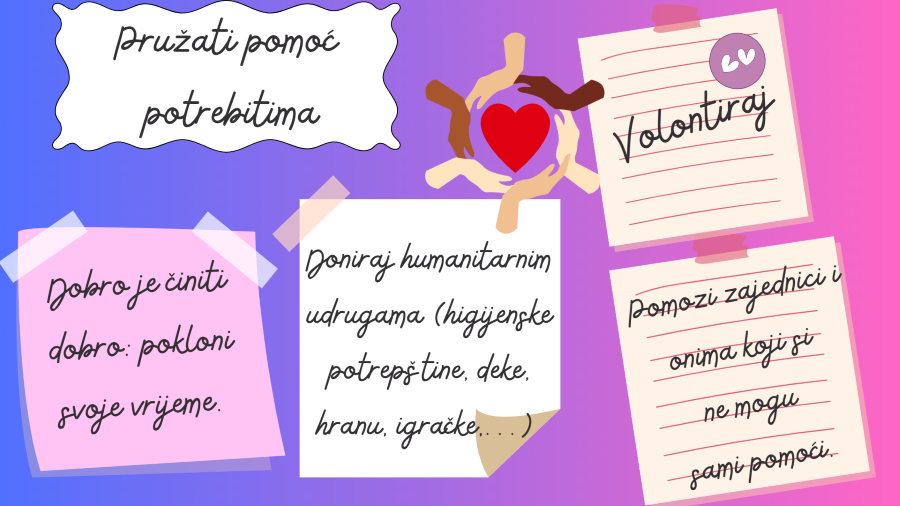 Pružati pomoć
potrebitima
Volontiraj
Dobro je činiti
dobro: pokloni
svoje vrijeme.
Doniraj humanitarnim
udrugama (higijenske
potrepštine, deke,
hranu, igračke,...)
Pomozi zajednici i
onima koji si
ne mogu
sami pomoći.